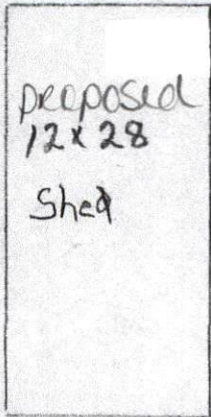 proposed
12 x 28
Shed